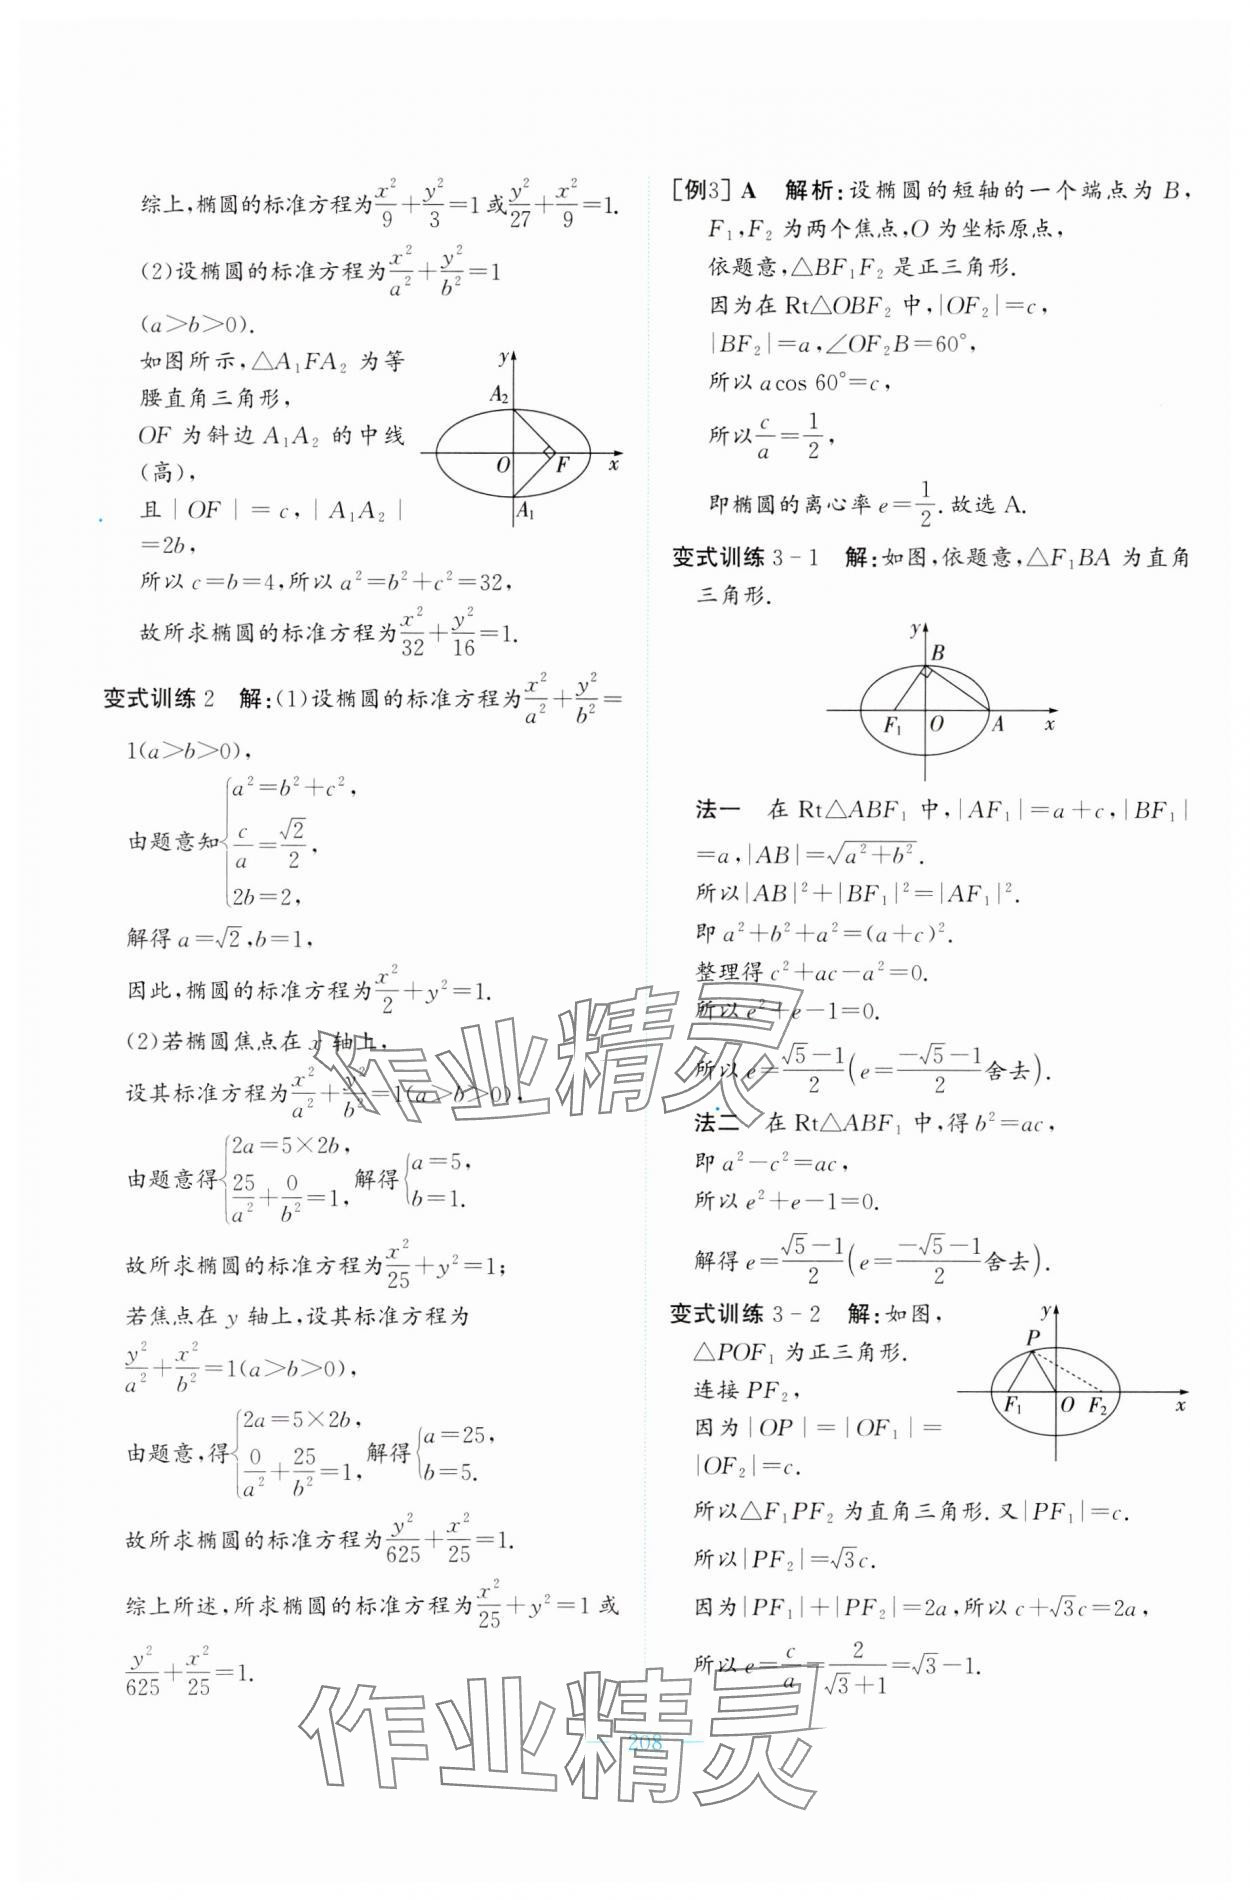 综上,椭圆的标准方程为x²/9+y²/3=1或y²/27+x²/9=1.
(2)设椭圆的标准方程为x²/a²+y²/b²=1
(a>b>0).
如图所示,△A₁FA₂ 为等
腰直角三角形,
OF 为斜边 A₁A₂ 的中线
(高),
且|OF|=c,|A₁A₂|
=2b,
y
A₂
O
F
x
A₁
所以 c=b=4,所以 a²=b²+c²=32,
故所求椭圆的标准方程为x²/32+y²/16=1.
变式训练 2 解:(1)设椭圆的标准方程为x²/a²+y²/b²=
1(a>b>0),
由题意知{a²=b²+c²,
c/a=√2/2,
2b=2,
解得 a=√2,b=1,
因此,椭圆的标准方程为x²/2+y²=1.
(2)若椭圆焦点在 x 轴上,
设其标准方程为x²/a²+y²/b²=1(a>b>0),
由题意得{2a=5×2b, 25/a²+0/b²=1, 解得{a=5, b=1.
故所求椭圆的标准方程为x²/25+y²=1;
若焦点在 y 轴上,设其标准方程为
y²/a²+x²/b²=1(a>b>0),
由题意,得{2a=5×2b, 0/a²+25/b²=1, 解得{a=25, b=5.
故所求椭圆的标准方程为y²/625+x²/25=1.
综上所述,所求椭圆的标准方程为x²/25+y²=1 或
y²/625+x²/25=1.
[例3] A 解析:设椭圆的短轴的一个端点为 B,
F₁,F₂ 为两个焦点,O 为坐标原点,
依题意,△BF₁F₂ 是正三角形.
因为在 Rt△OBF₂ 中,|OF₂|=c,
|BF₂|=a,∠OF₂B=60°,
所以 acos 60°=c,
所以c/a=1/2,
即椭圆的离心率 e=1/2.故选 A.
变式训练 3-1 解:如图,依题意,△F₁BA 为直角
三角形.
y
B
F₁
O
A
x
法一 在 Rt△ABF₁ 中,|AF₁|=a+c,|BF₁|
=a,|AB|=√(a²+b²).
所以|AB|²+|BF₁|²=|AF₁|².
即 a²+b²+a²=(a+c)².
整理得 c²+ac-a²=0.
所以 e²+e-1=0.
所以 e=(√5-1)/2(e=(-√5-1)/2舍去).
法二 在 Rt△ABF₁ 中,得 b²=ac,
即 a²-c²=ac,
所以 e²+e-1=0.
解得 e=(√5-1)/2(e=(-√5-1)/2舍去).
变式训练 3-2 解:如图,
△POF₁ 为正三角形.
连接 PF₂,
因为|OP|=|OF₁|=
|OF₂|=c.
y
P
F₁
O
F₂
x
所以△F₁PF₂ 为直角三角形.又|PF₁|=c.
所以|PF₂|=√3c.
因为|PF₁|+|PF₂|=2a,所以 c+√3c=2a,
所以 e=c/a=2/(√3+1)=√3-1.
208
作业精灵
作业精灵